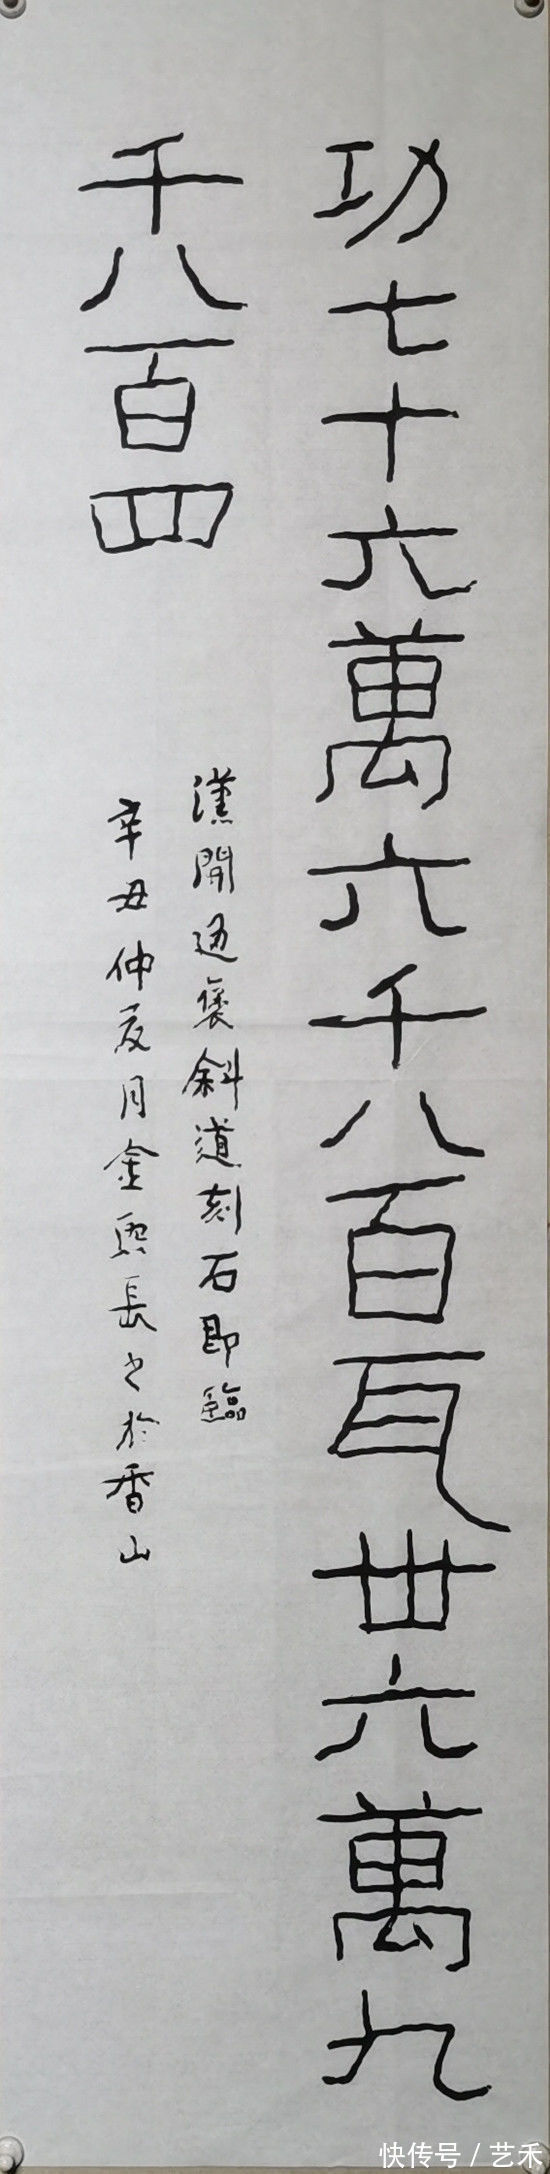 功七十六萬六千八百瓦卅六萬九
千八百四
漢開通褒斜道刻石節臨
辛丑仲夏月金興長書於香山
快传号 / 艺禾